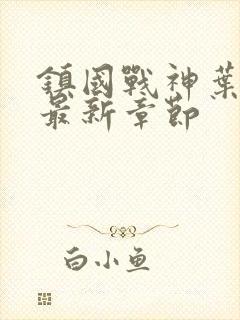 鎮國戰神葉
最新章節
白小鱼